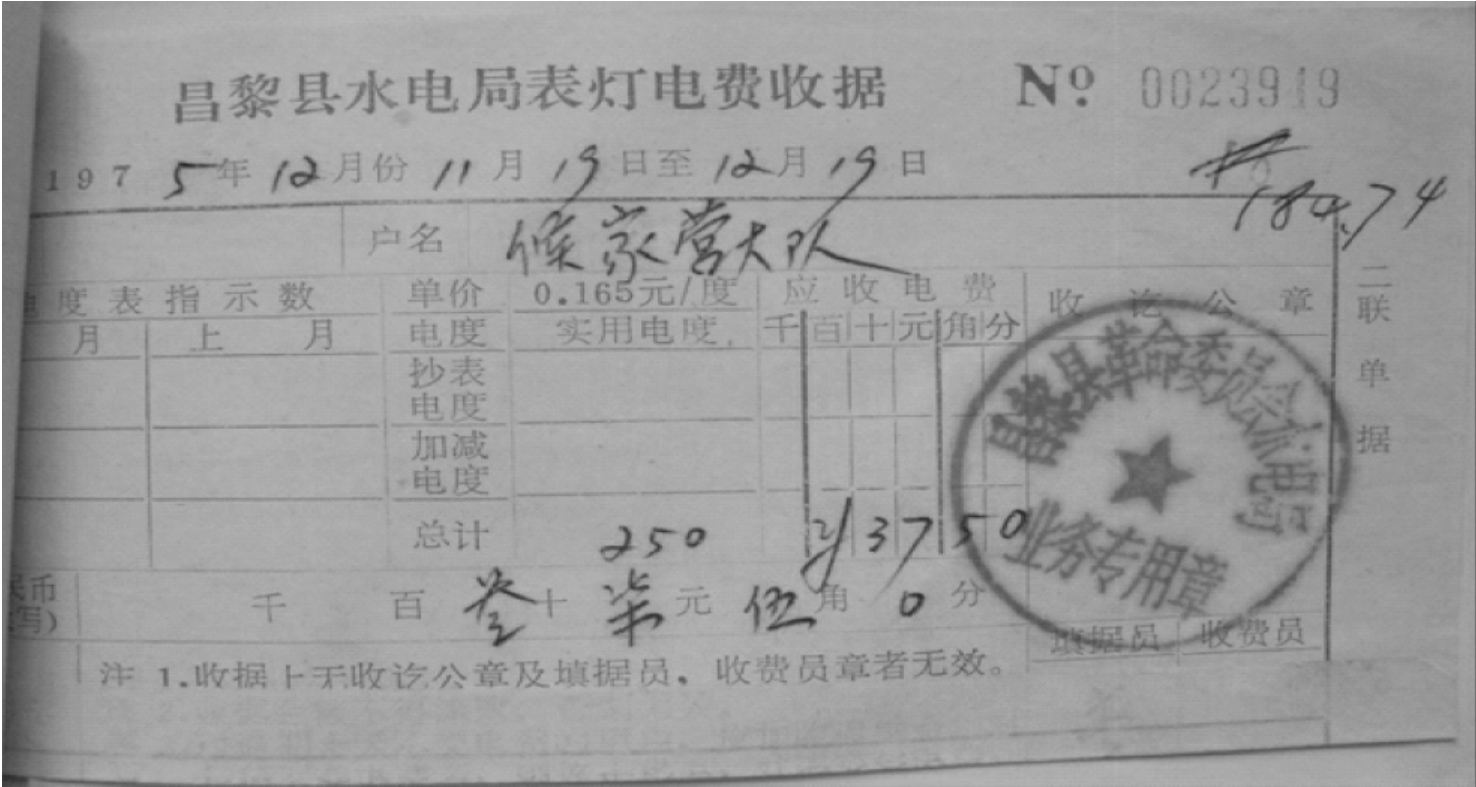 昌黎县水电局表灯电费收据 No 0023919
1975年12月份11月19日至12月19日
184.74
户名 候家营大队
度表指示数 单价 0.165元/度 应收电费 收讫公章
月 上月 电度 实用电度 千百十元角分
抄表电度
加减电度
总计 250 37 50
民币 千 百 叁十 柒元 伍角 0分
写)
填据员 收费员
注 1.收据上无收讫公章及填据员、收费员章者无效。
二联单据
昌黎县革命委员会水电局
业务专用章